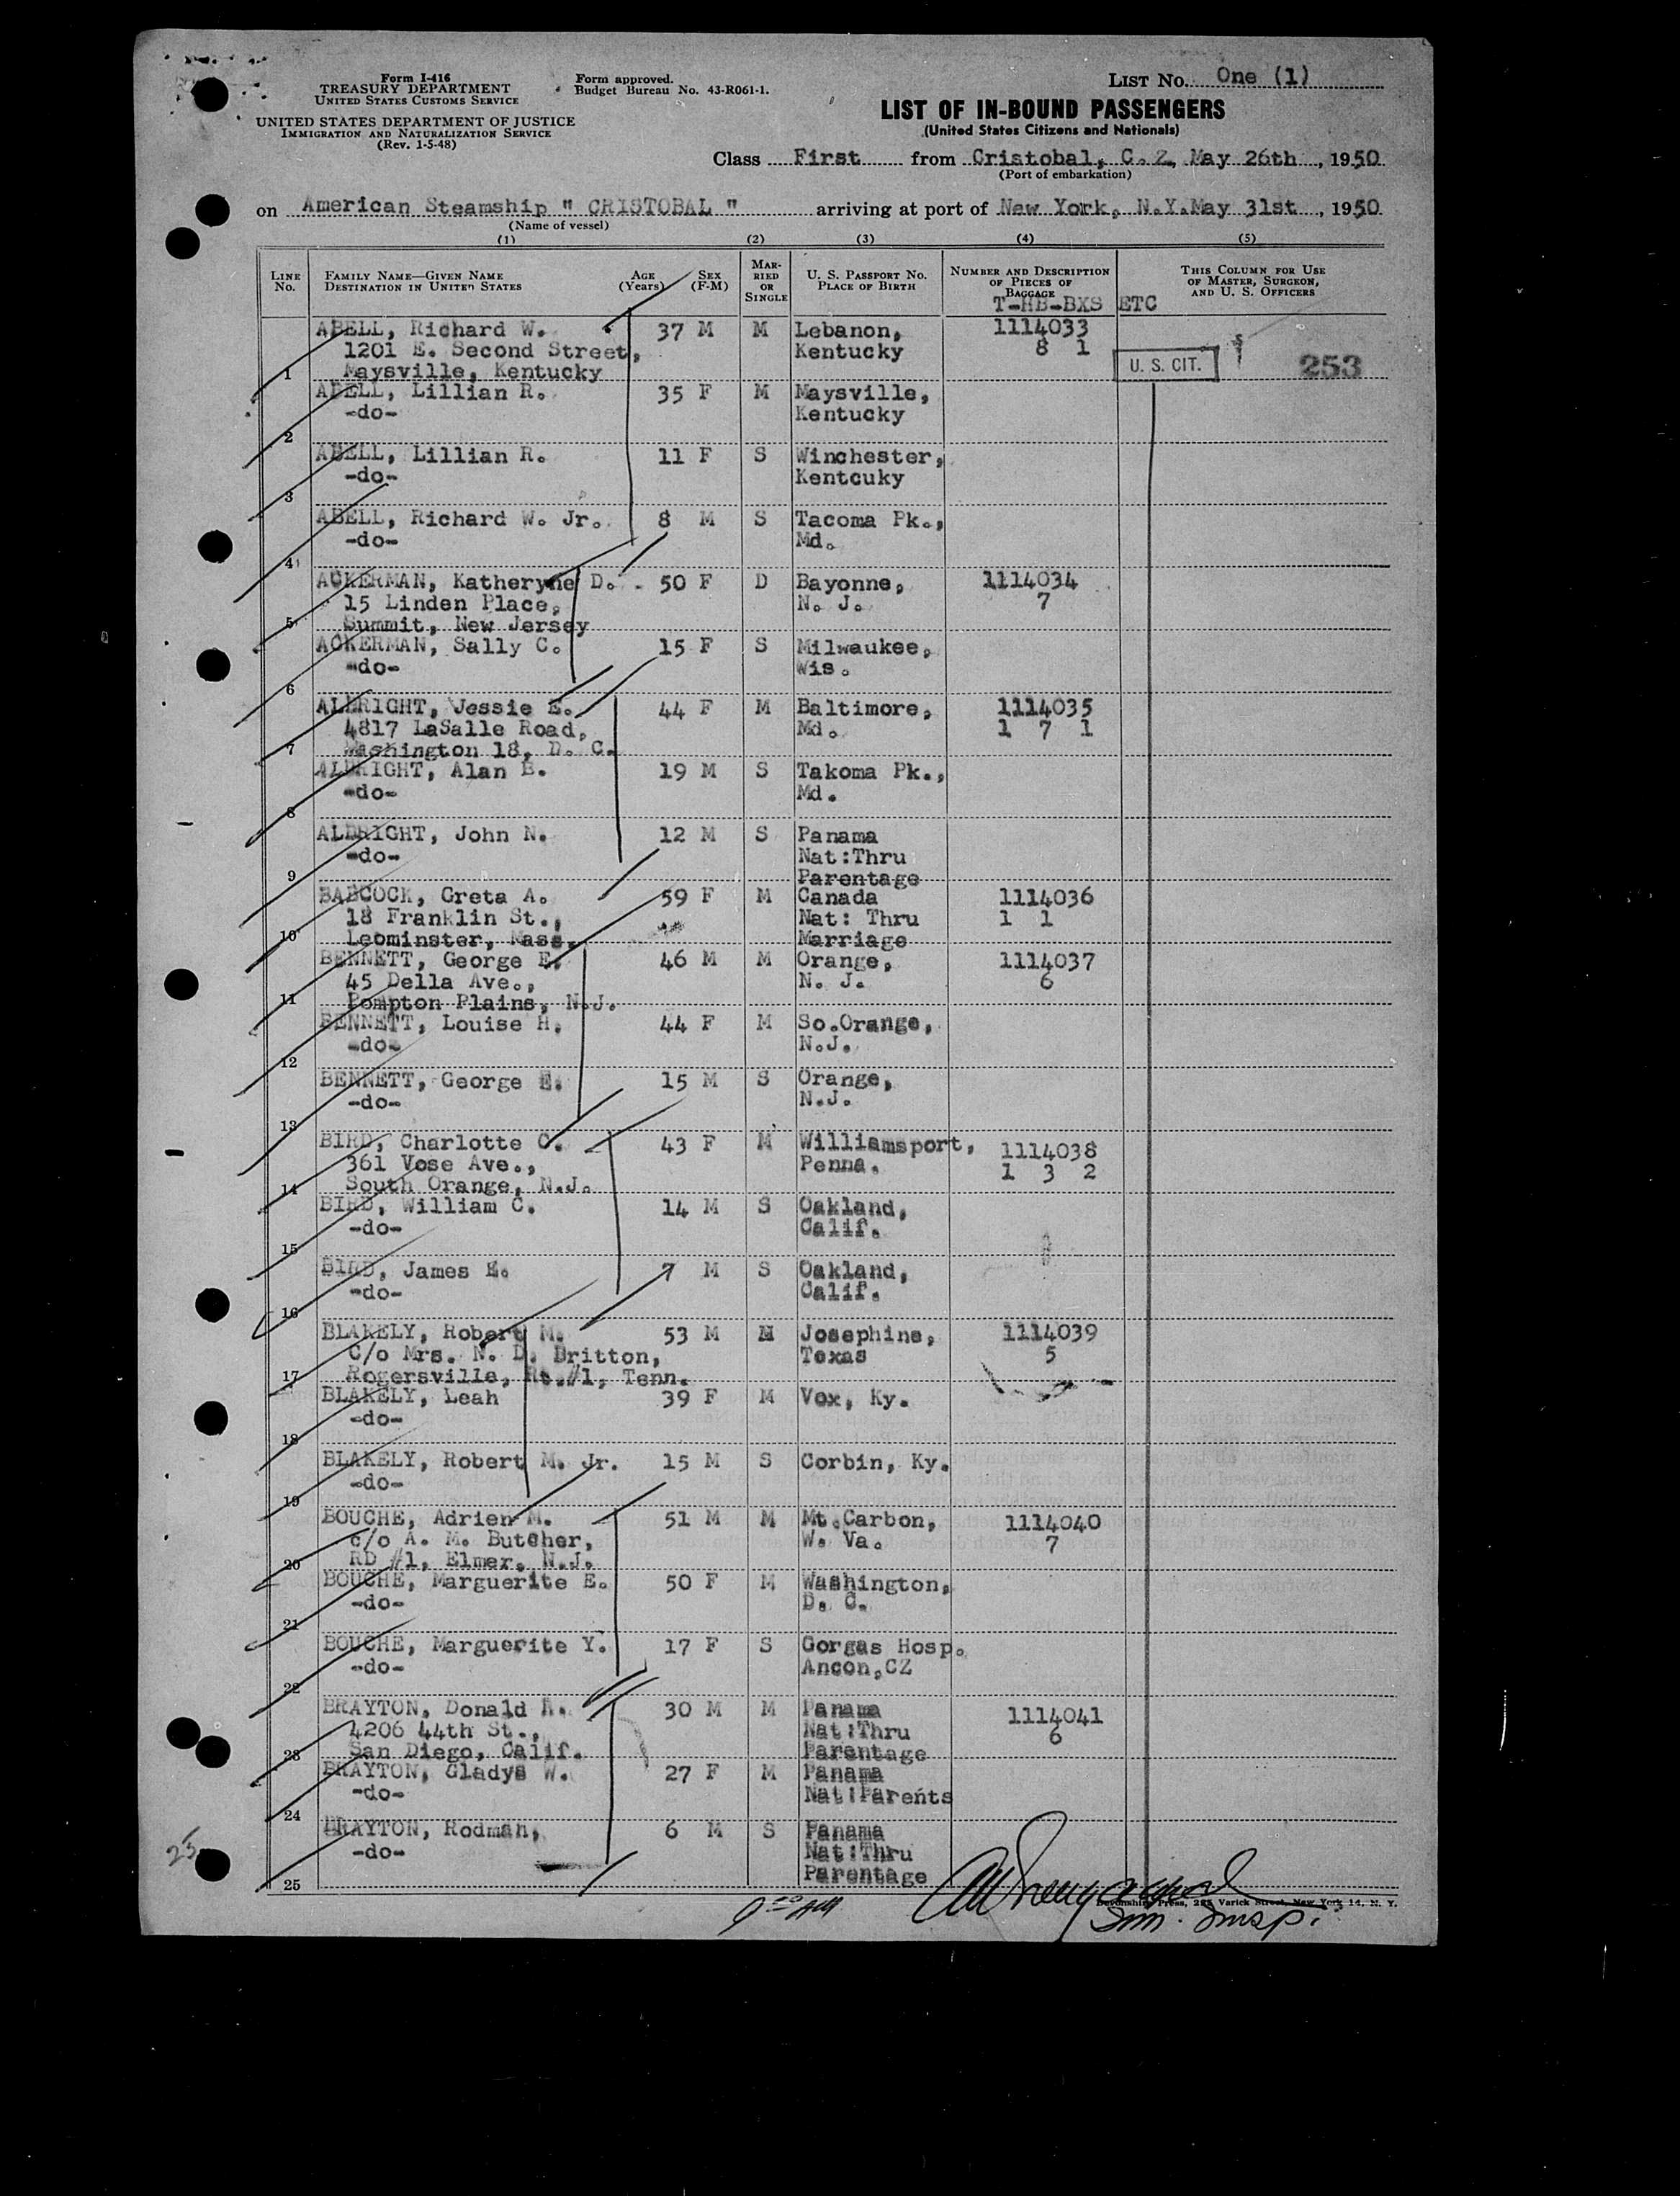 Form I-416
TREASURY DEPARTMENT
UNITED STATES CUSTOMS SERVICE
UNITED STATES DEPARTMENT OF JUSTICE
IMMIGRATION AND NATURALIZATION SERVICE
(Rev. 1-5-48)
Form approved.
Budget Bureau No. 43-R061-1.
LIST NO. One (1)
LIST OF IN-BOUND PASSENGERS
(United States Citizens and Nationals)
Class First from Cristobal, C. Z, May 26th, 1950
(Port of embarkation)
on American Steamship " CRISTOBAL " arriving at port of New York, N.Y. May 31st, 1950
(Name of vessel)
(1) (2) (3) (4) (5)
LINE NO. FAMILY NAME—GIVEN NAME DESTINATION IN UNITED STATES AGE (Years) SEX (F-M) MARRIED OR SINGLE U. S. PASSPORT NO. PLACE OF BIRTH NUMBER AND DESCRIPTION OF PIECES OF BAGGAGE THIS COLUMN FOR USE OF MASTER, SURGEON, AND U. S. OFFICERS
T-HB-BXS ETC
ABELL, Richard W. 37 M M Lebanon, 1114033
1201 E. Second Street, Kentucky 8 1
1 Maysville, Kentucky U. S. CIT. 253
ABELL, Lillian R. 35 F M Maysville,
-do- Kentucky
2
ABELL, Lillian R. 11 F S Winchester,
-do- Kentcuky
3
ABELL, Richard W. Jr. 8 M S Tacoma Pk.,
-do- Md.
4
ACKERMAN, Katheryne D. 50 F D Bayonne, 1114034
15 Linden Place, N. J. 7
5 Summit, New Jersey
ACKERMAN, Sally C. 15 F S Milwaukee,
-do- Wis.
6
ALBRIGHT, Jessie E. 44 F M Baltimore, 1114035
4817 LaSalle Road, Md. 1 7 1
7 Washington 18, D. C.
ALBRIGHT, Alan B. 19 M S Takoma Pk.,
-do- Md.
8
ALBRIGHT, John N. 12 M S Panama
-do- Nat:Thru
9 Parentage
BABCOCK, Greta A. 59 F M Canada 1114036
18 Franklin St., Nat: Thru 1 1
10 Leominster, Mass. Marriage
BENNETT, George E. 46 M M Orange, 1114037
45 Della Ave., N. J. 6
11 Pompton Plains, N.J.
BENNETT, Louise H. 44 F M So.Orange,
-do- N.J.
12
BENNETT, George E. 15 M S Orange,
-do- N.J.
13
BIRD, Charlotte C. 43 F M Williamsport, 1114038
361 Vose Ave., Penna. 1 3 2
14 South Orange, N.J.
BIRD, William C. 14 M S Oakland,
-do- Calif.
15
BIRD, James E. 7 M S Oakland,
-do- Calif.
16
BLAKELY, Robert M. 53 M M Josephine, 1114039
C/o Mrs. N. D. Britton, Texas 5
17 Rogersville, Rt.#1, Tenn.
BLAKELY, Leah 39 F M Vox, Ky.
-do-
18
BLAKELY, Robert M. Jr. 15 M S Corbin, Ky.
-do-
19
BOUCHE, Adrien M. 51 M M Mt.Carbon, 1114040
c/o A. M. Butcher, W. Va. 7
20 RD #1, Elmer, N.J.
BOUCHE, Marguerite E. 50 F M Washington,
-do- D. C.
21
BOUCHE, Marguerite Y. 17 F S Gorgas Hosp.
-do- Ancon,CZ
22
BRAYTON, Donald 30 M M Panama 1114041
4206 44th St., Nat:Thru 6
23 San Diego, Calif. Parentage
BRAYTON, Gladys W. 27 F M Panama
-do- Nat:Parents
24
BRAYTON, Rodman, 6 M S Panama
-do- Nat:Thru
25 Parentage
25
Devonshire Press, Varick Street, New York 14, N. Y.
Imm. Insp.